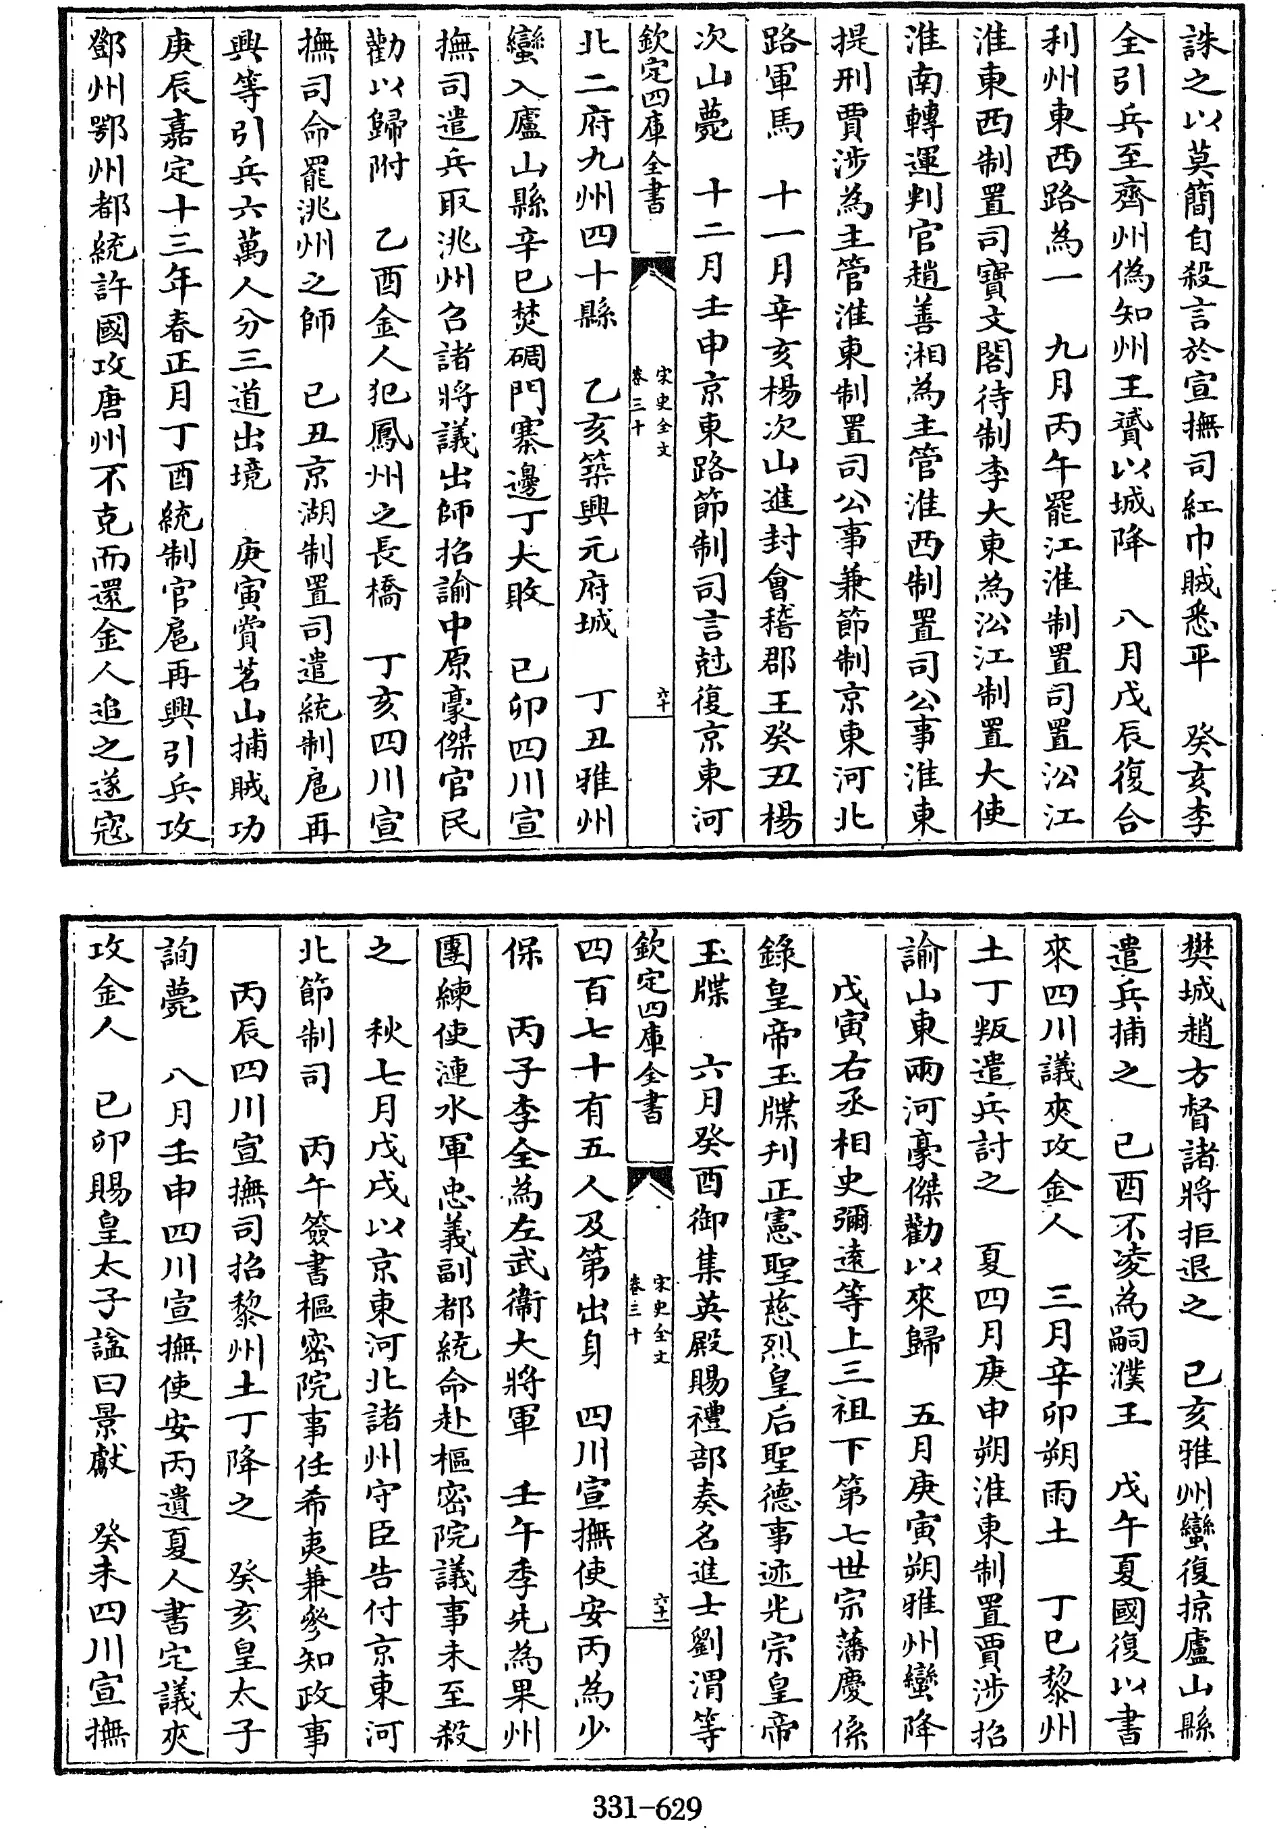 誅之以莫簡自殺言於宣撫司紅巾賊悉平　癸亥李
全引兵至齊州偽知州王贇以城降　八月戊辰復合
利州東西路為一　九月丙午罷江淮制置司置㳂江
淮東西制置司寶文閣待制李大東為㳂江制置大使
淮南轉運判官趙善湘為主管淮西制置司公事淮東
提刑賈涉為主管淮東制置司公事兼節制京東河北
路軍馬　十一月辛亥楊次山進封會稽郡王癸丑楊
次山薨　十二月壬申京東路節制司言尅復京東河
欽定四庫全書
宋史全文
卷三十
六十
北二府九州四十縣　乙亥築興元府城　丁丑雅州
蠻入廬山縣辛巳焚碉門寨邊丁大敗　已卯四川宣
撫司遣兵取洮州召諸將議出師招諭中原豪傑官民
勸以歸附　乙酉金人犯鳳州之長橋　丁亥四川宣
撫司命罷洮州之師　己丑京湖制置司遣統制扈再
興等引兵六萬人分三道出境　庚寅賞茗山捕賊功
庚辰嘉定十三年春正月丁酉統制官扈再興引兵攻
鄧州鄂州都統許國攻唐州不克而還金人追之遂寇
樊城趙方督諸將拒退之　己亥雅州蠻復掠廬山縣
遣兵捕之　己酉不凌為嗣濮王　戊午夏國復以書
來四川議夾攻金人　三月辛卯朔雨土　丁巳黎州
土丁叛遣兵討之　夏四月庚申朔淮東制置賈涉招
諭山東兩河豪傑勸以來歸　五月庚寅朔雅州蠻降
戊寅右丞相史彌遠等上三祖下第七世宗藩慶係
錄皇帝玉牒刋正憲聖慈烈皇后聖德事迹光宗皇帝
玉牒　六月癸酉御集英殿賜禮部奏名進士劉渭等
欽定四庫全書
宋史全文
卷三十
六十一
四百七十有五人及第出身　四川宣撫使安丙為少
保　丙子李全為左武衞大將軍　壬午季先為果州
團練使漣水軍忠義副都統命赴樞密院議事未至殺
之　秋七月戊戌以京東河北諸州守臣告付京東河
北節制司　丙午簽書樞密院事任希夷兼參知政事
丙辰四川宣撫司招黎州土丁降之　癸亥皇太子
詢薨　八月壬申四川宣撫使安丙遺夏人書定議夾
攻金人　已卯賜皇太子諡曰景獻　癸未四川宣撫
331-629